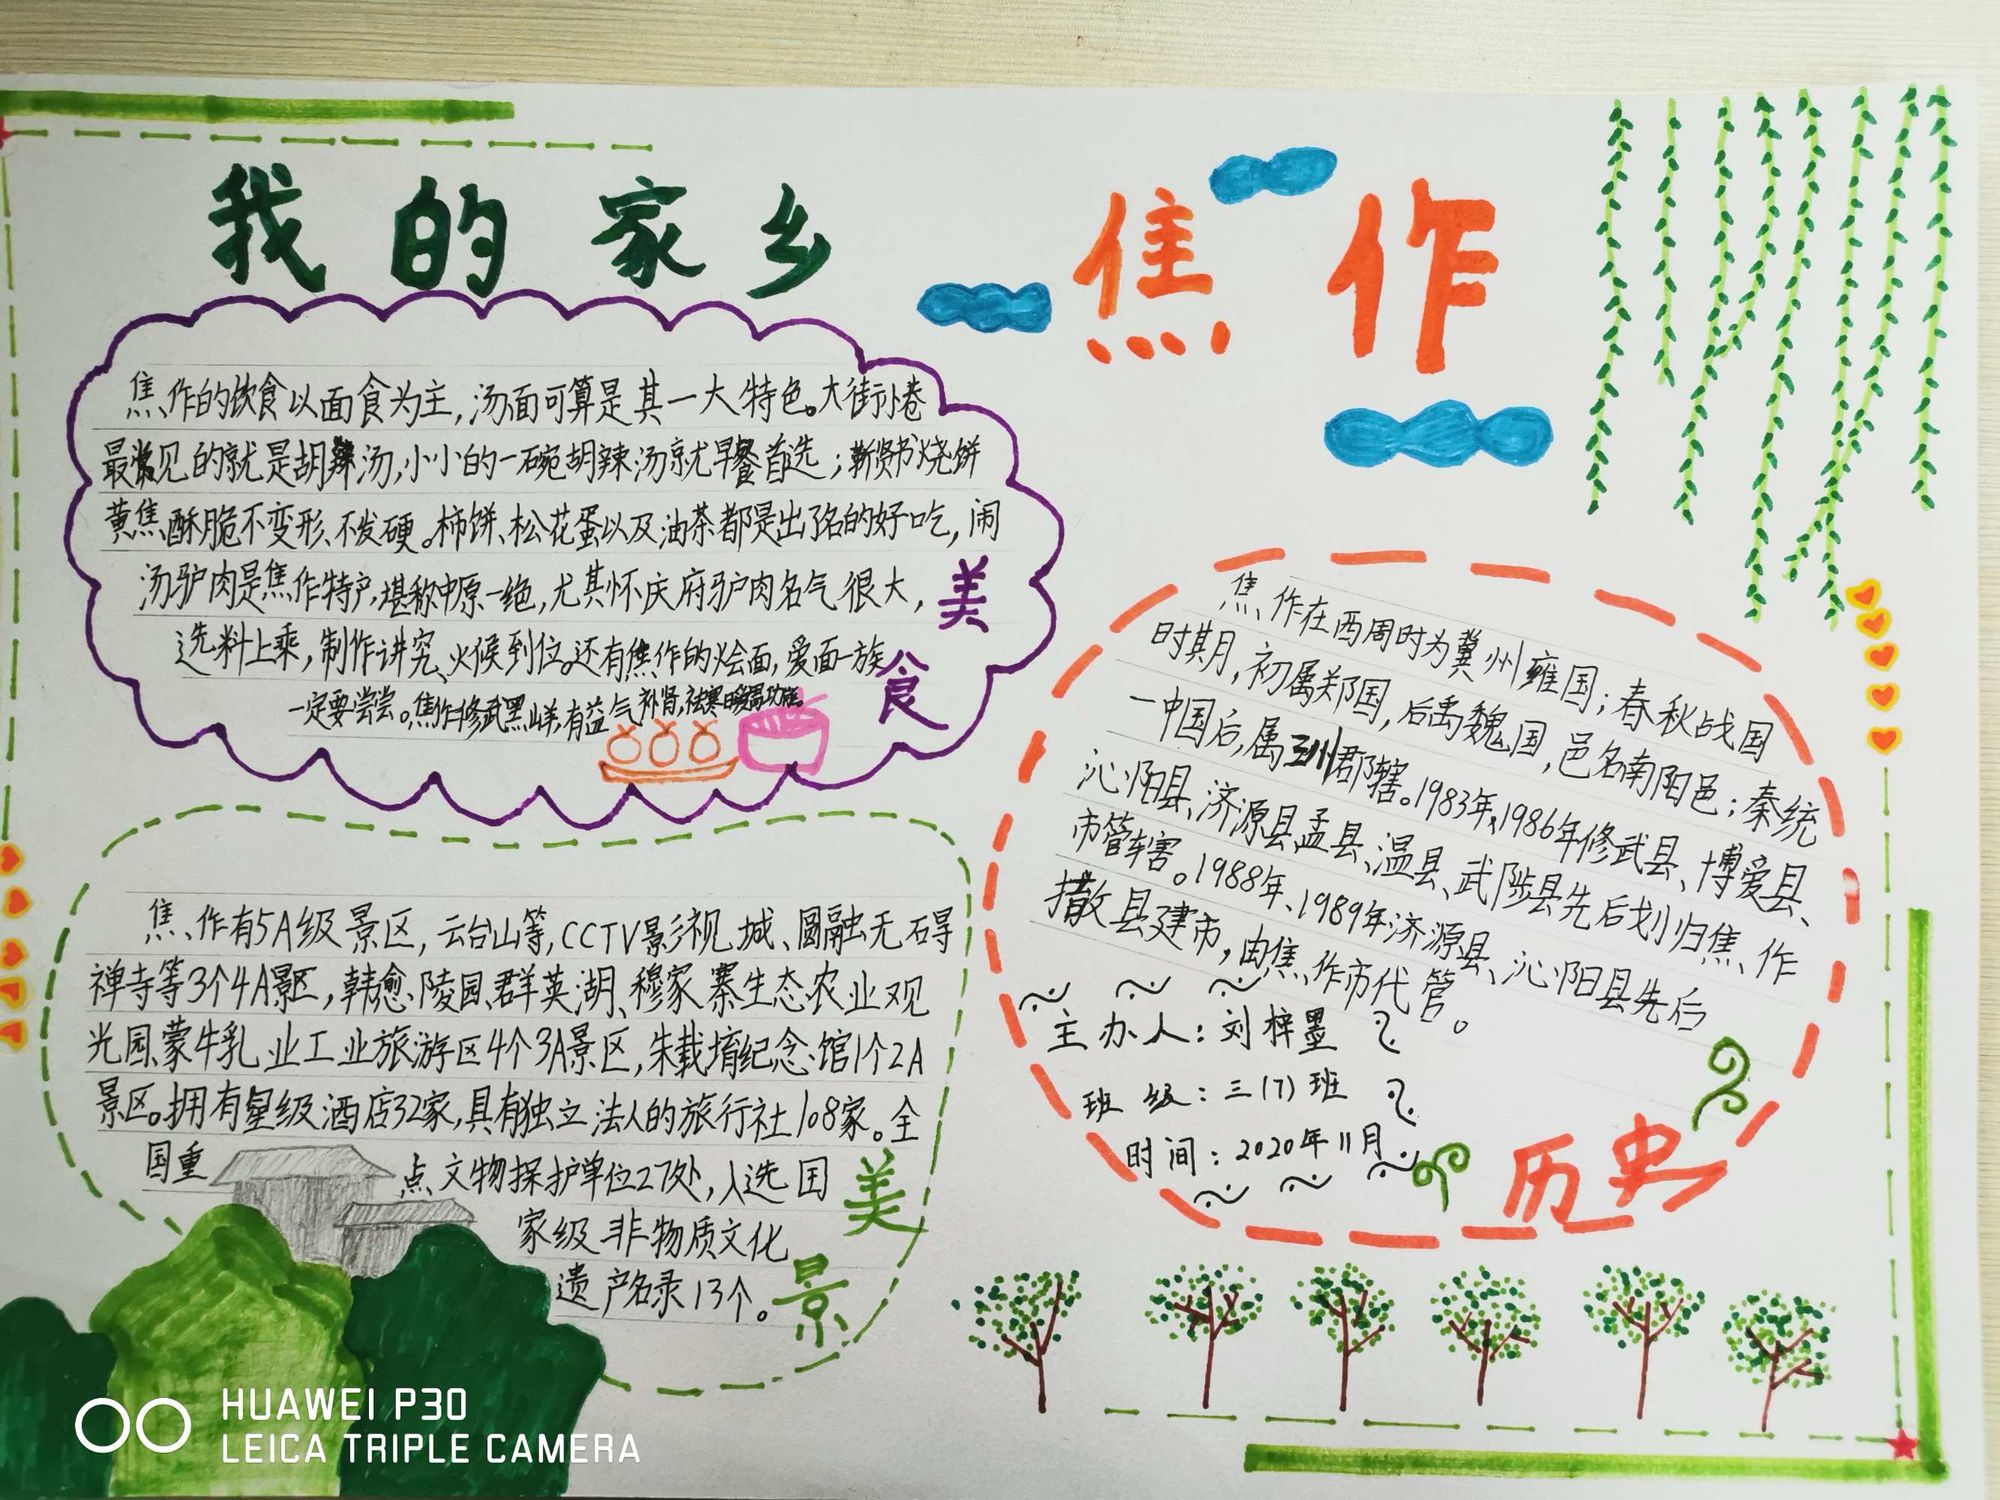 我的家乡
焦作
焦作的饮食以面食为主,汤面可算是其一大特色。大街小巷
最常见的就是胡辣汤,小小的一碗胡辣汤就早餐首选;靳贤书烧饼
黄焦酥脆不变形、不发硬。柿饼、松花蛋以及油茶都是出了名的好吃,闹
汤驴肉是焦作特产,堪称中原一绝,尤其怀庆府驴肉名气很大,
选料上乘,制作讲究、火候到位。还有焦作的烩面,爱面一族
一定要尝尝。焦作修武黑山羊,有益气补肾,祛寒暖胃功能。
美食
焦作有5A级景区,云台山等,CCTV影视城、圆融无碍
禅寺等3个4A景区,韩愈陵园、群英湖、穆家寨生态农业观
光园、蒙牛乳业工业旅游区4个3A景区,朱载堉纪念馆1个2A
景区。拥有星级酒店32家,具有独立法人的旅行社108家。全
国重点文物探护单位27处,入选国
家级非物质文化
遗产名录13个。
美景
焦作在西周时为冀州雍国;春秋战国
时期,初属郑国,后禹魏国,邑名南阳邑;秦统
一中国后,属三川郡辖。1983年、1986年修武县、博爱县、
沁阳县、济源县、孟县、温县、武陟县先后划归焦作
市管辖。1988年、1989年济源县、沁阳县先后
撤县建市,由焦作市代管。
主办人:刘梓墨
班级:三(7)班
时间:2020年11月
历史
HUAWEI P30
LEICA TRIPLE CAMERA